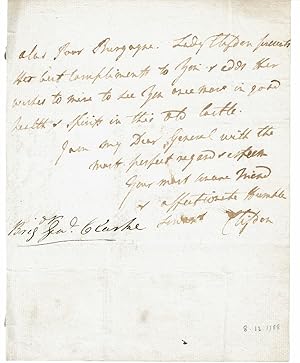 alas Poor Burgoyne. Lady Clifden presents
Her best compliments to You & adds Her
wishes to mine to see You once more in good
health & Spirits in this old Castle.
I am my Dear General with the
most perfect regard & esteem
Your most sincere Friend
& affectionate Humble
Servant Clifden
Brigd. Genl. Clarke
8.12.1788